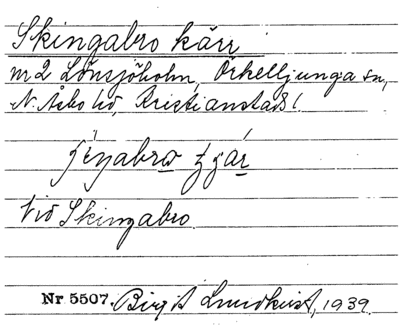 Skingabro kärr
nr 2 Lönsjöholm, Örkelljunga sn,
N. Åsbo hd, Kristianstads l.
Vid Skingabro
Nr 5507. Birgit Lundkvist, 1939